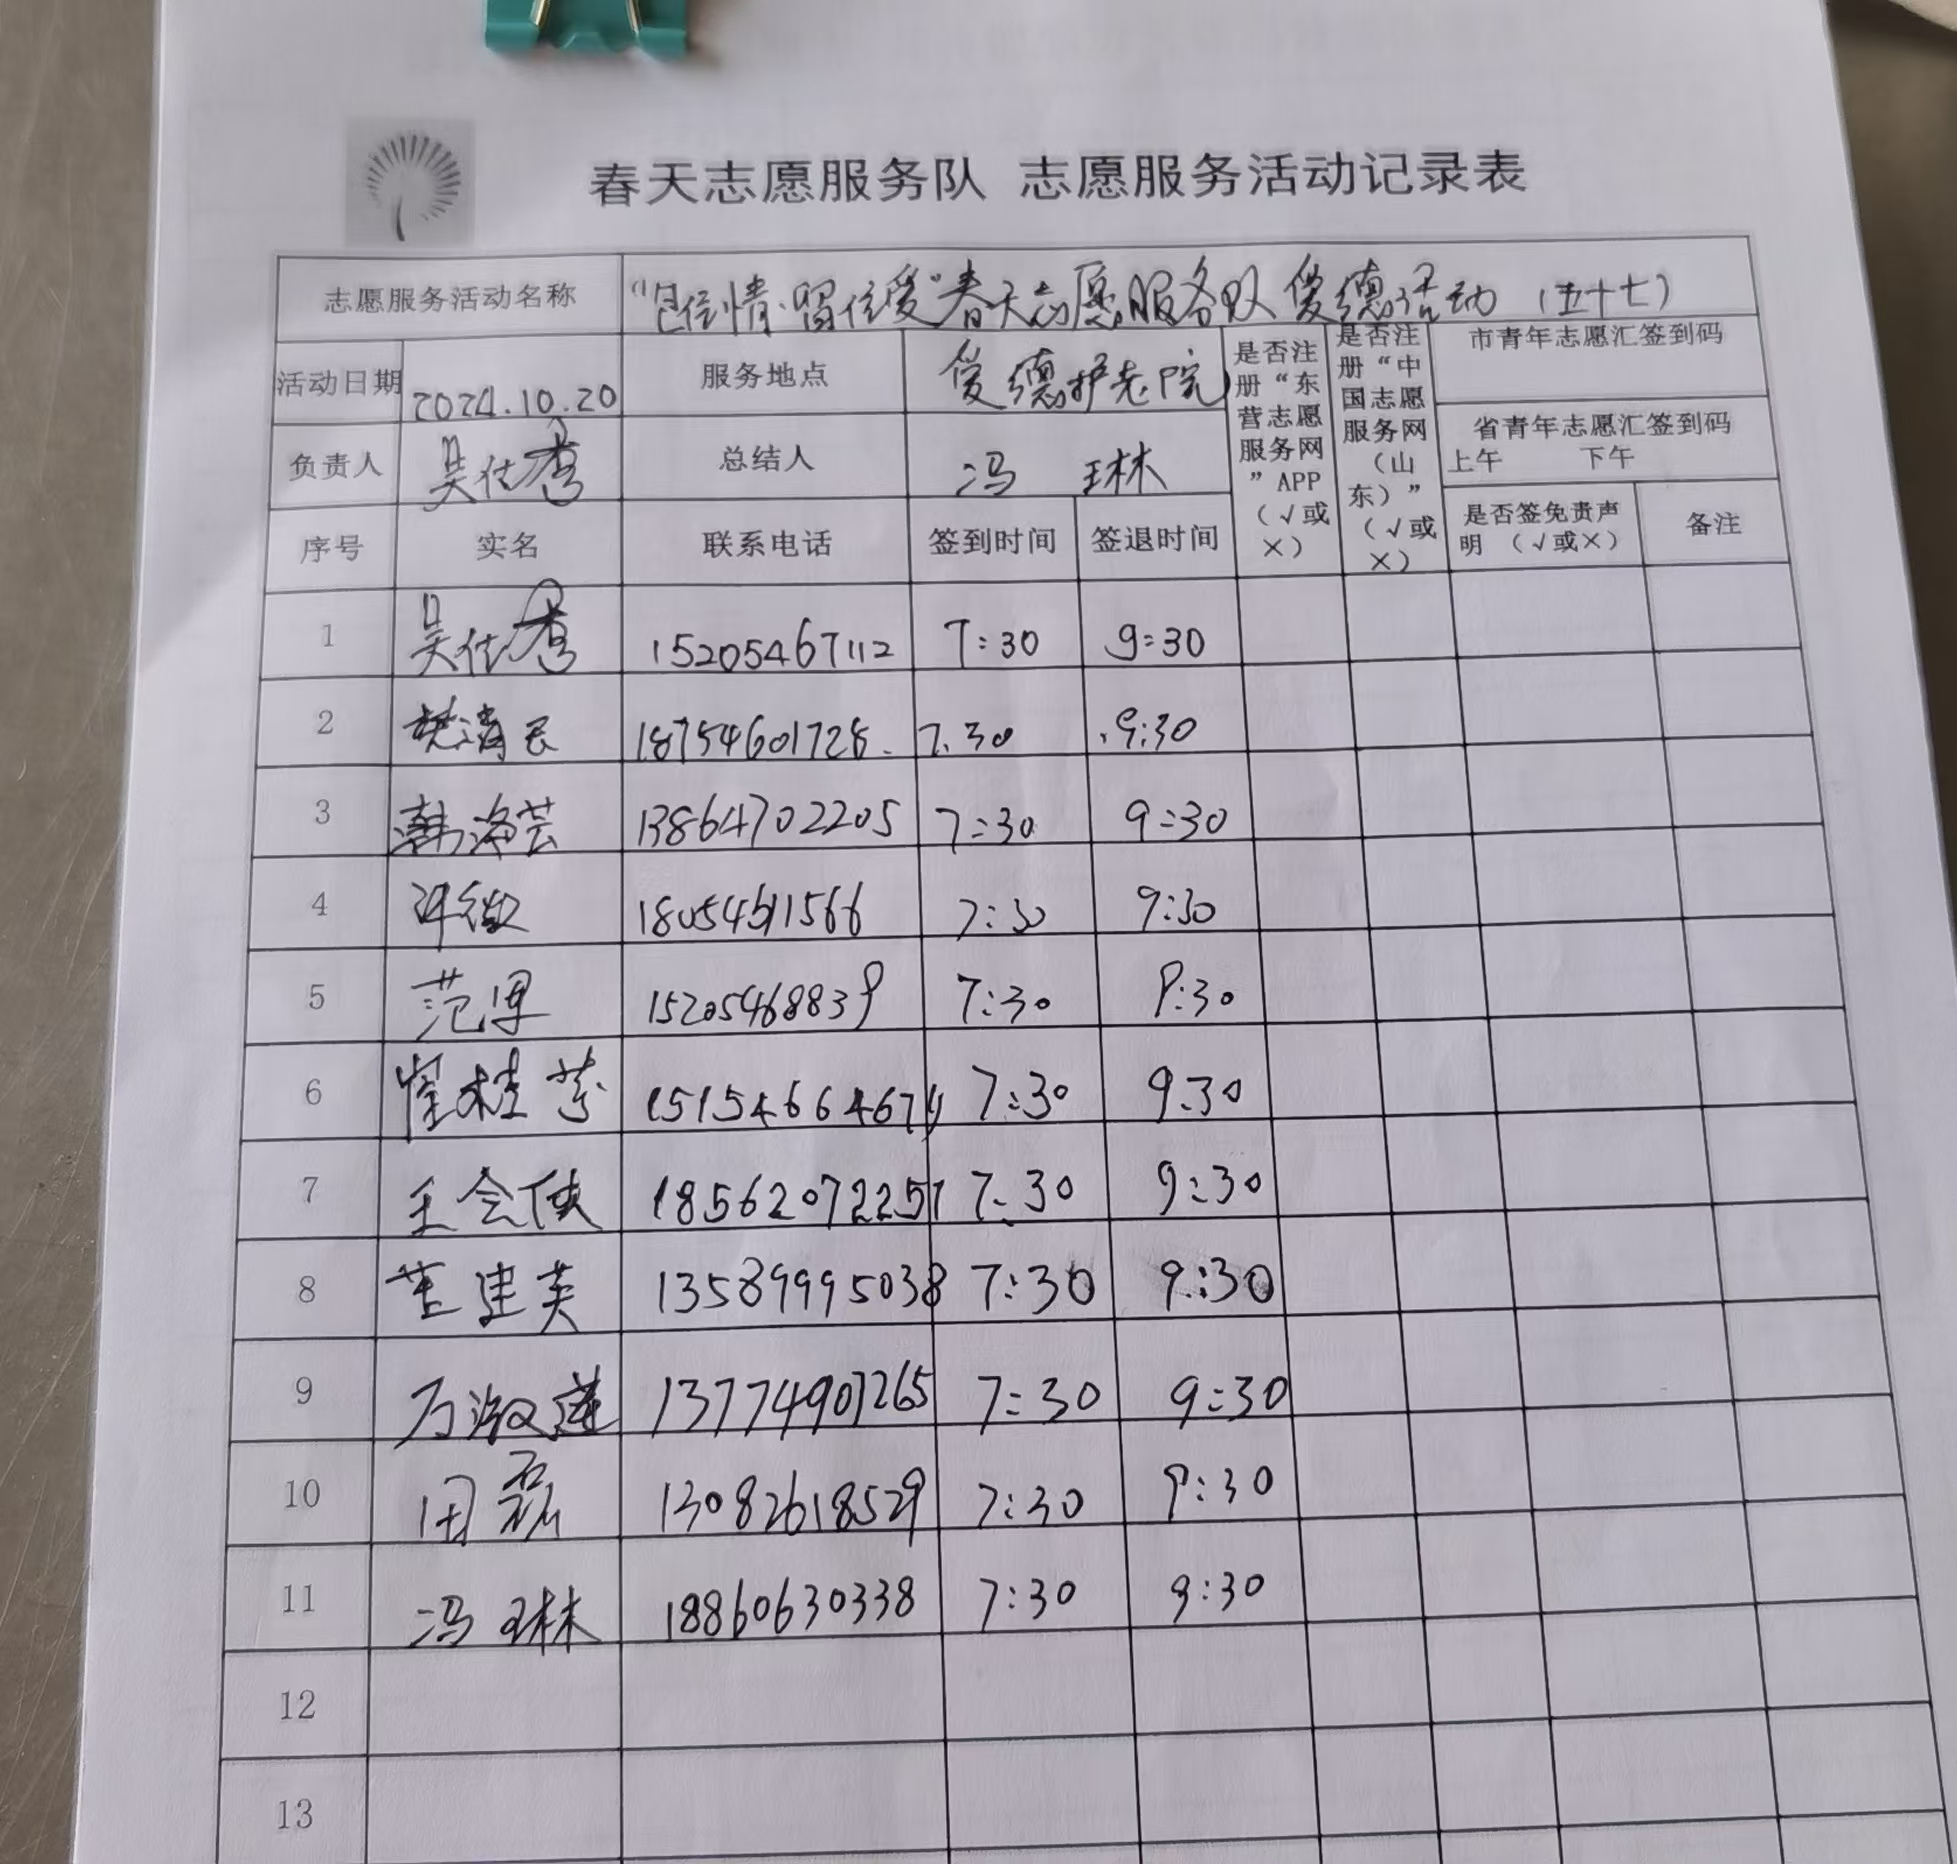 春天志愿服务队 志愿服务活动记录表
志愿服务活动名称 "记住情·留住爱"春天志愿服务队爱德活动（五十七）
活动日期 2024.10.20 服务地点 爱德护老院 是否注册“东营志愿服务网”APP（√或×） 是否注册“中国志愿服务网（山东）”（√或×） 市青年志愿汇签到码
负责人 吴仕秀 总结人 冯琳 省青年志愿汇签到码 上午 下午
序号 实名 联系电话 签到时间 签退时间 是否签免责声明（√或×） 备注
1 吴仕秀 15205467112 7:30 9:30
2 18754601728 7.30 9:30
3 韩海芸 13864702205 7:30 9:30
4 7:30 9:30
5 范军 15205468839 7:30 9:30
6 崔桂芬 7:30 9:30
7 王会侠 18562072257 7:30 9:30
8 董建英 13589995038 7:30 9:30
9 万淑莲 13774907265 7:30 9:30
10 田磊 13082618529 7:30 9:30
11 冯琳 18860630338 7:30 9:30
12
13